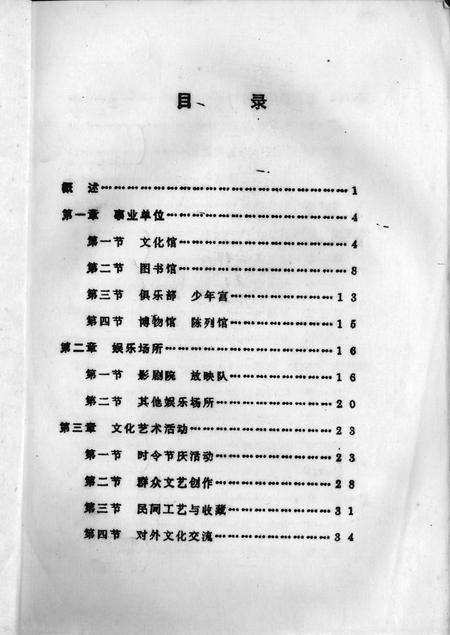 目 录
概 述…………………………………………1
第一章 事业单位………………………………4
第一节 文化馆………………………………4
第二节 图书馆………………………………8
第三节 俱乐部 少年宫……………………13
第四节 博物馆 陈列馆……………………15
第二章 娱乐场所………………………………16
第一节 影剧院 放映队……………………16
第二节 其他娱乐场所………………………20
第三章 文化艺术活动…………………………23
第一节 时令节庆活动………………………23
第二节 群众文艺创作………………………28
第三节 民间工艺与收藏……………………31
第四节 对外文化交流………………………34